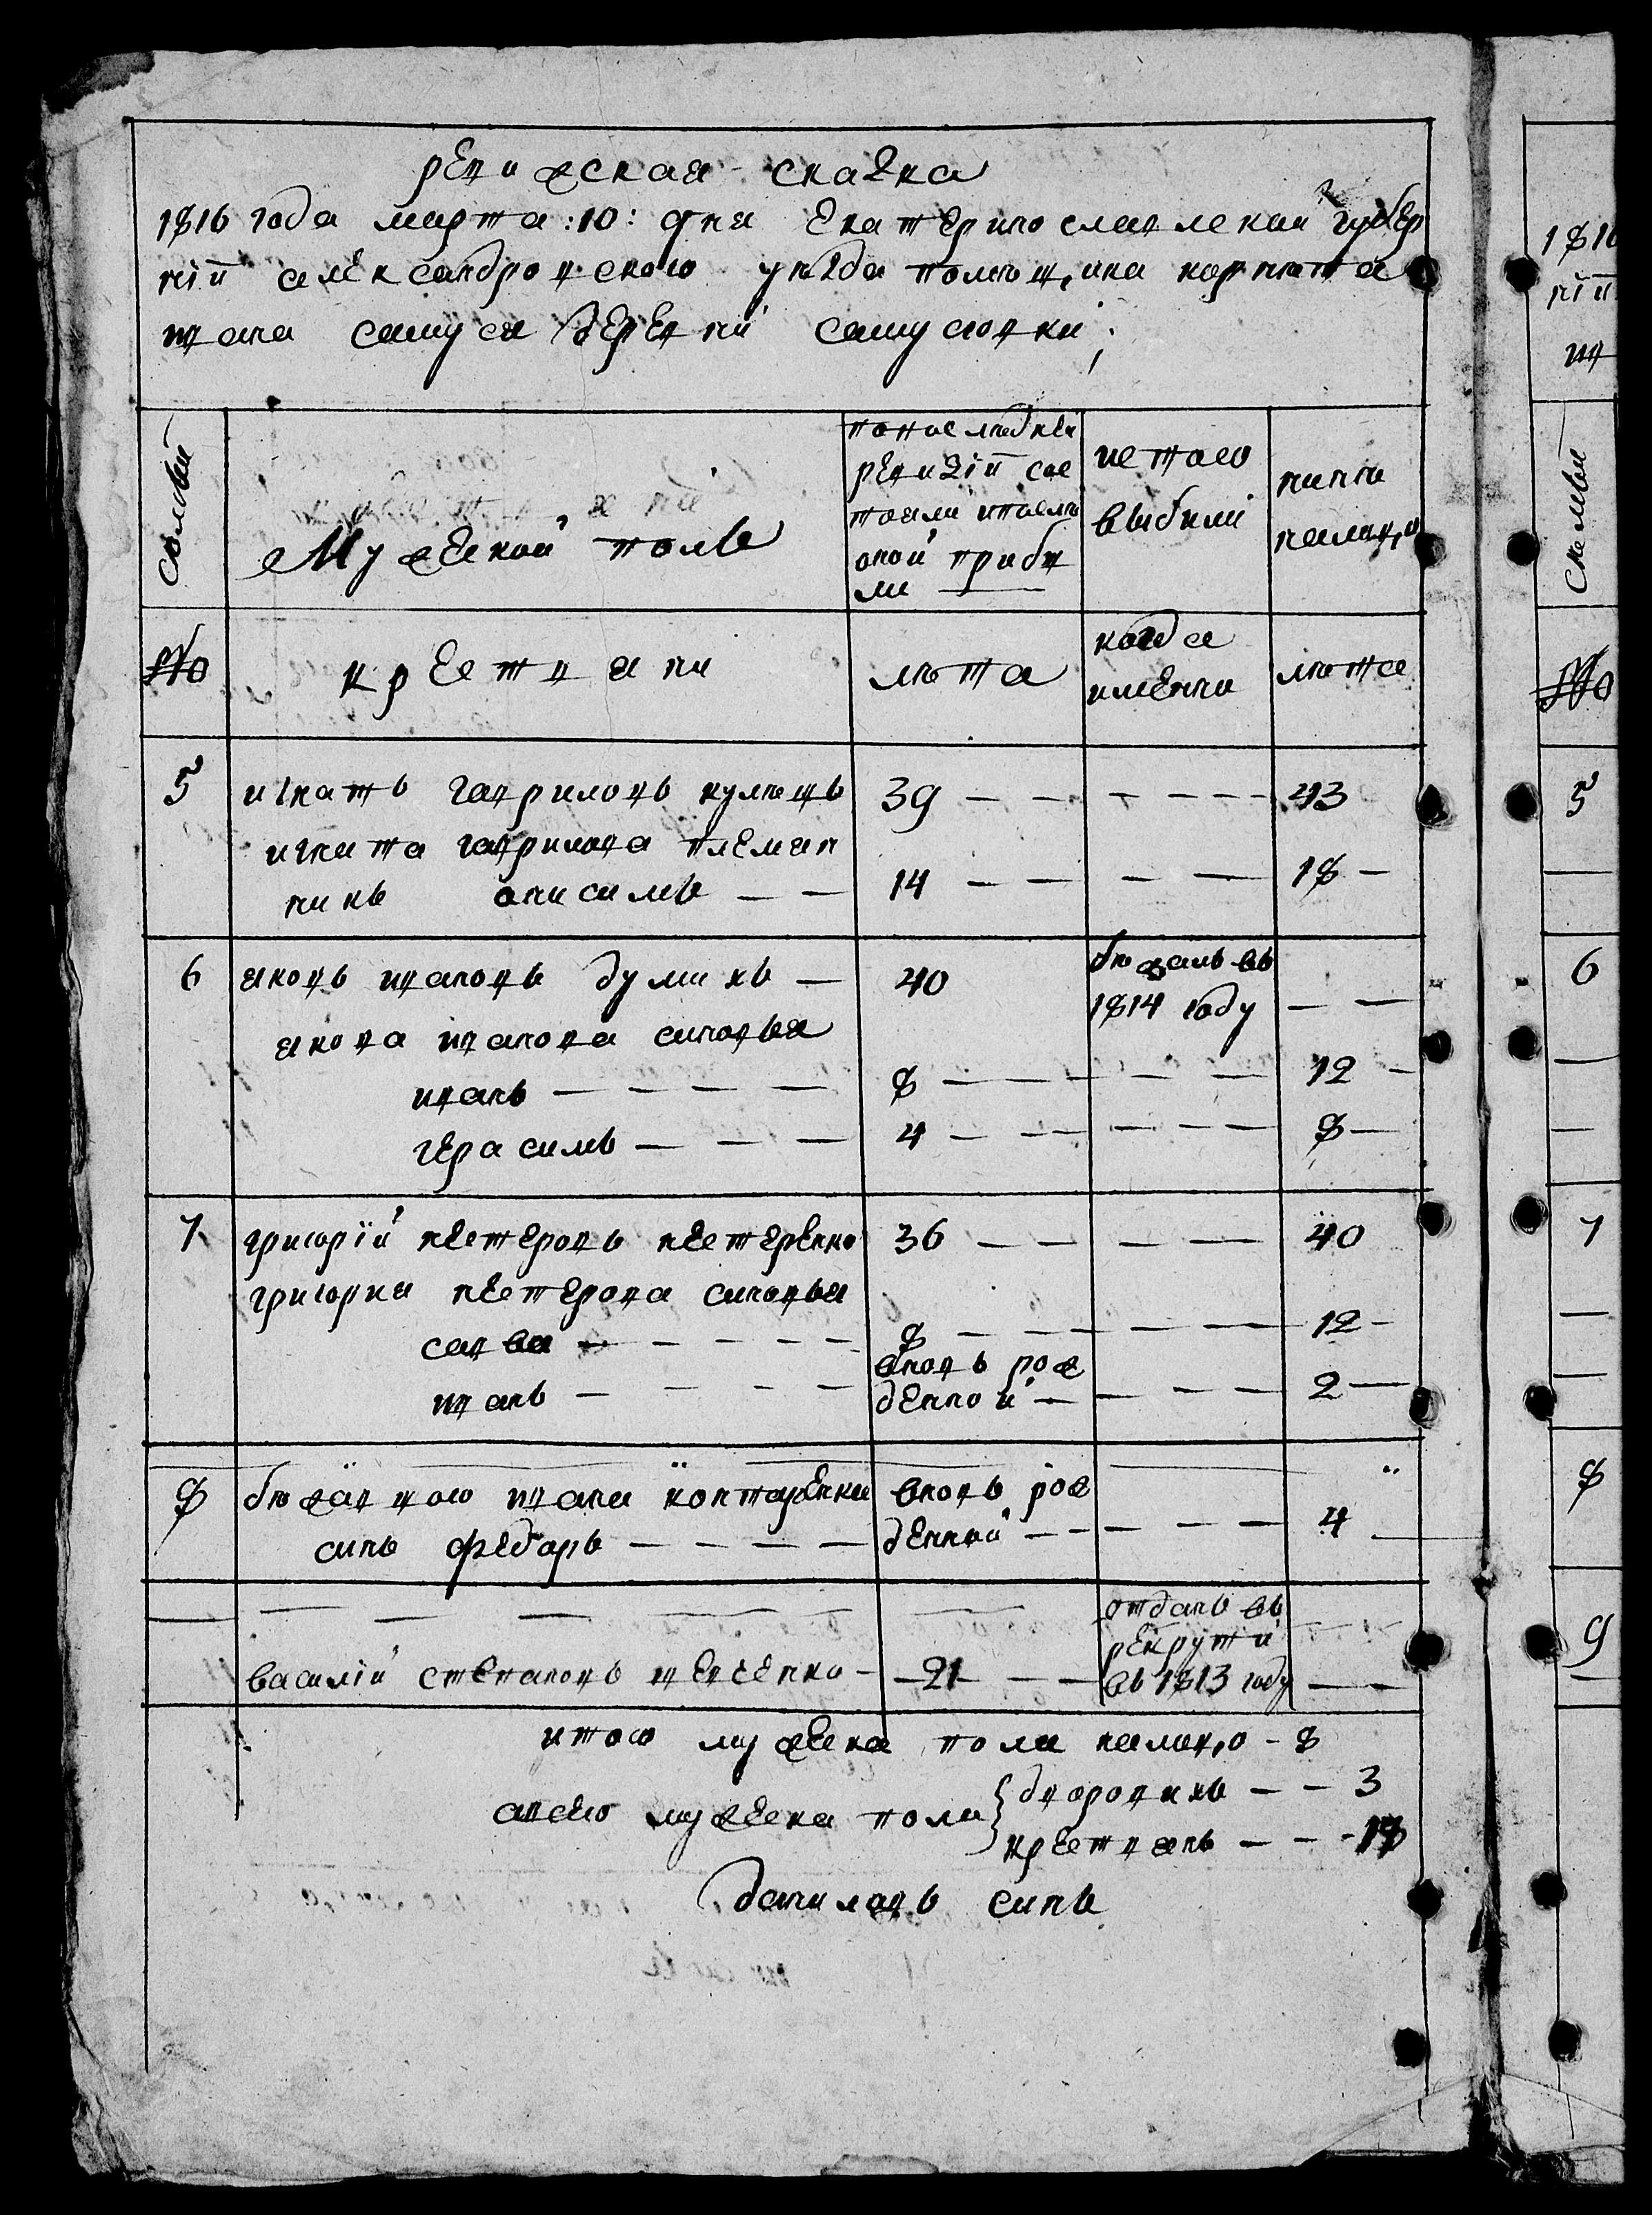 ревижская сказка
1816 года марта :10: дня екатеринославской губер
нiи александровского уезда помещика корнета
ивана самуся деревни самусовки;
семьи
Мужеской полъ
по последней
ревизiи сос
тояли и после
оной прибы
ли
ис того
выбыли
ныне
налицо
№
крестяни
лета
когда
именно
лета
5
игнатъ гавриловъ кулешъ
39 — — — — — — 43
игната гаврилова племян
никъ анисимъ — —
14 — — — — 18 —
6
яковъ ивановъ думикъ —
40
бежалъ въ
1814 году
— —
якова иванова сыновья
иванъ — — — —
8 — — — — 12 —
герасимъ — — —
4 — — — — — 8 —
7
григорiй нестеровъ нестеренко
36 — — — — 40
григория нестерова сыновья
савва — — — — —
8 — — — — 12 —
иванъ — — — —
вновь рож
денной — — — — 2 —
8
бежавшого ивана контаренка
вновь рож
сынъ федоръ — — — —
денной — — — — — 4
отданъ въ
рекруты
василiй степановъ шевченко —
21 — —
въ 1813 году
— —
итого мужеска пола налицо — 8
а всего мужеска пола
дворовихъ — — 3
крестянъ — — - 18
даниловъ сынъ
1816
нiи
ив
семьи
№
5
6
7
8
9